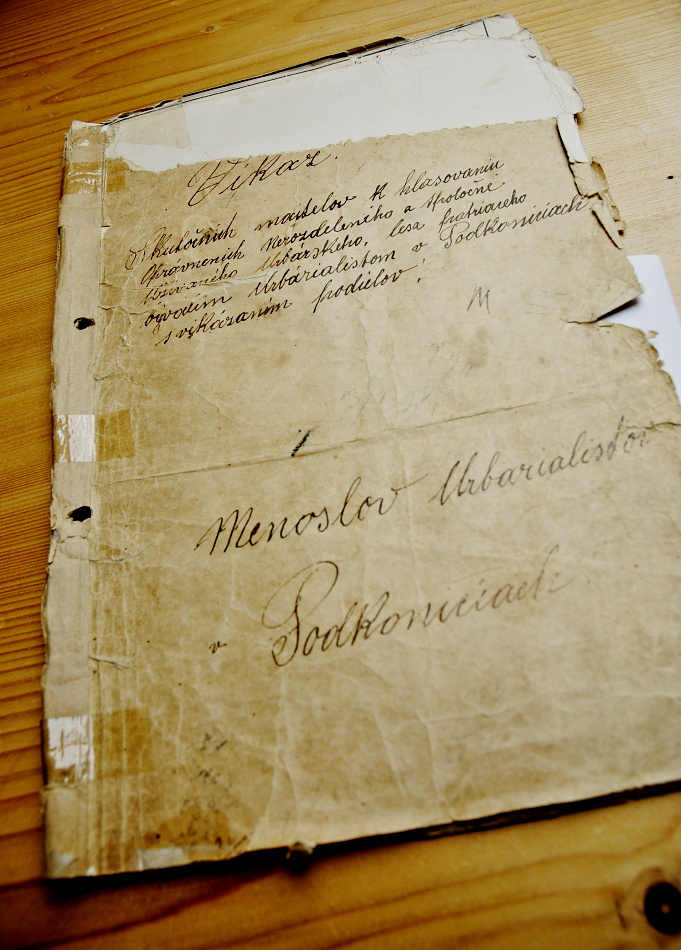 Víkaz.
Skutočních majtelov k hlasovaniu
Oprávnenich Nerozdeleného a spoločne
Užívaného Urbárskeho, lesa patriaceho
bývalím Urbarialistom v Podkoniciach
s vikázaním podielov.
M
Menoslov Urbarialistov
v Podkoniciach